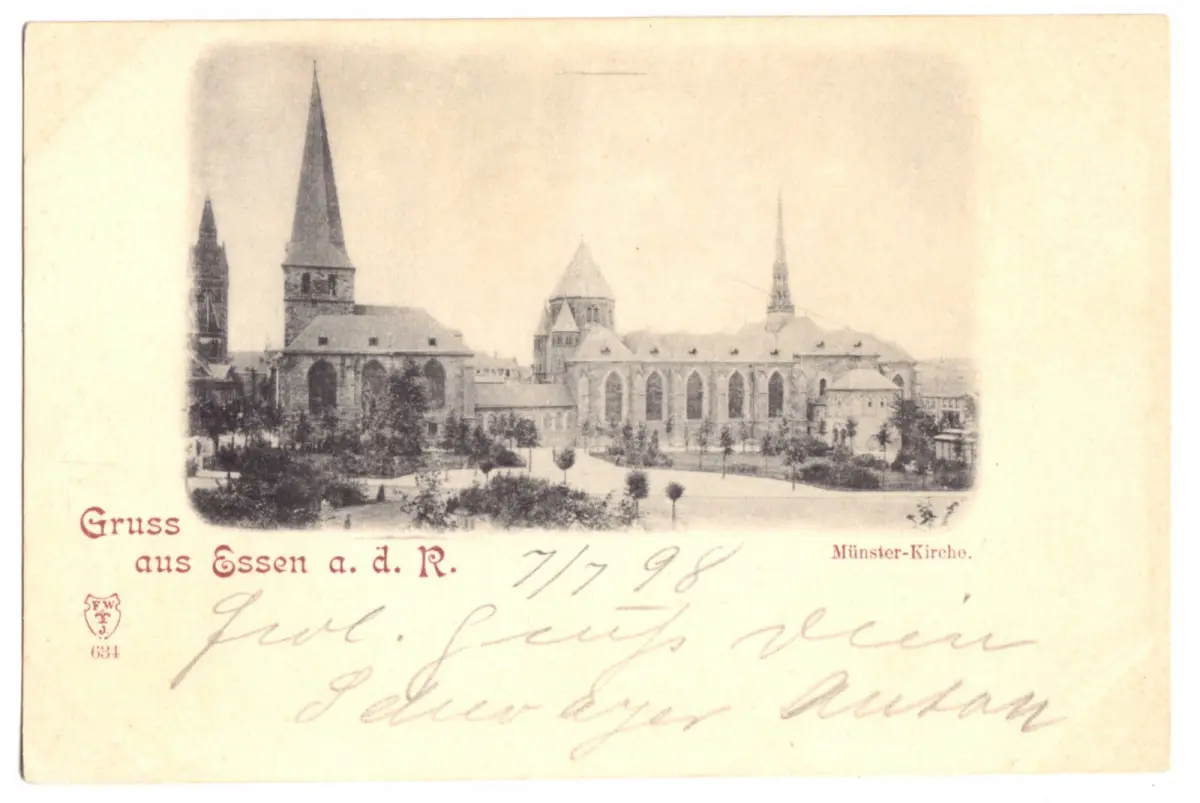 Gruss
aus Essen a. d. R.
Münster-Kirche.
7/7 98
F W
J
634
Gruß Dein
Schwager Anton